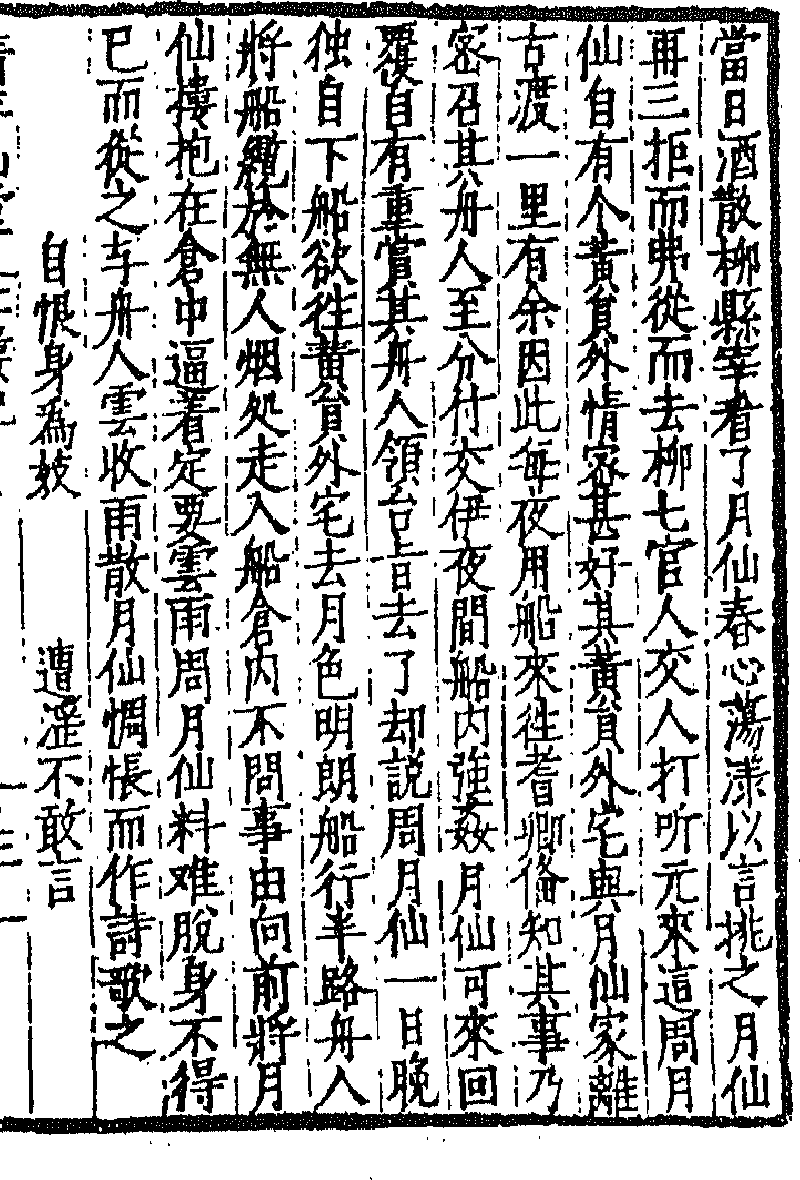 當日酒散柳縣宰看了月仙春心蕩漾以言挑之月仙
再三拒而弗從而去柳七官人交人打听元來這周月
仙自有个黃員外情密甚好其黃員外宅與月仙家離
古渡一里有余因此每夜用船來往耆卿俻知其事乃
密召其舟人至分付交伊夜間船内強姦月仙可來回
覆自有重賞其舟人領台旨去了却説周月仙一日晚
独自下船欲往黃員外宅去月色明朗船行半路舟人
將船纜於無人烟処走入船倉内不問事由向前將月
仙摟抱在倉中逼着定要雲雨周月仙料难脫身不得
已而從之与舟人雲收雨散月仙惆悵而作詩歌之
自恨身為妓　遭淫不敢言